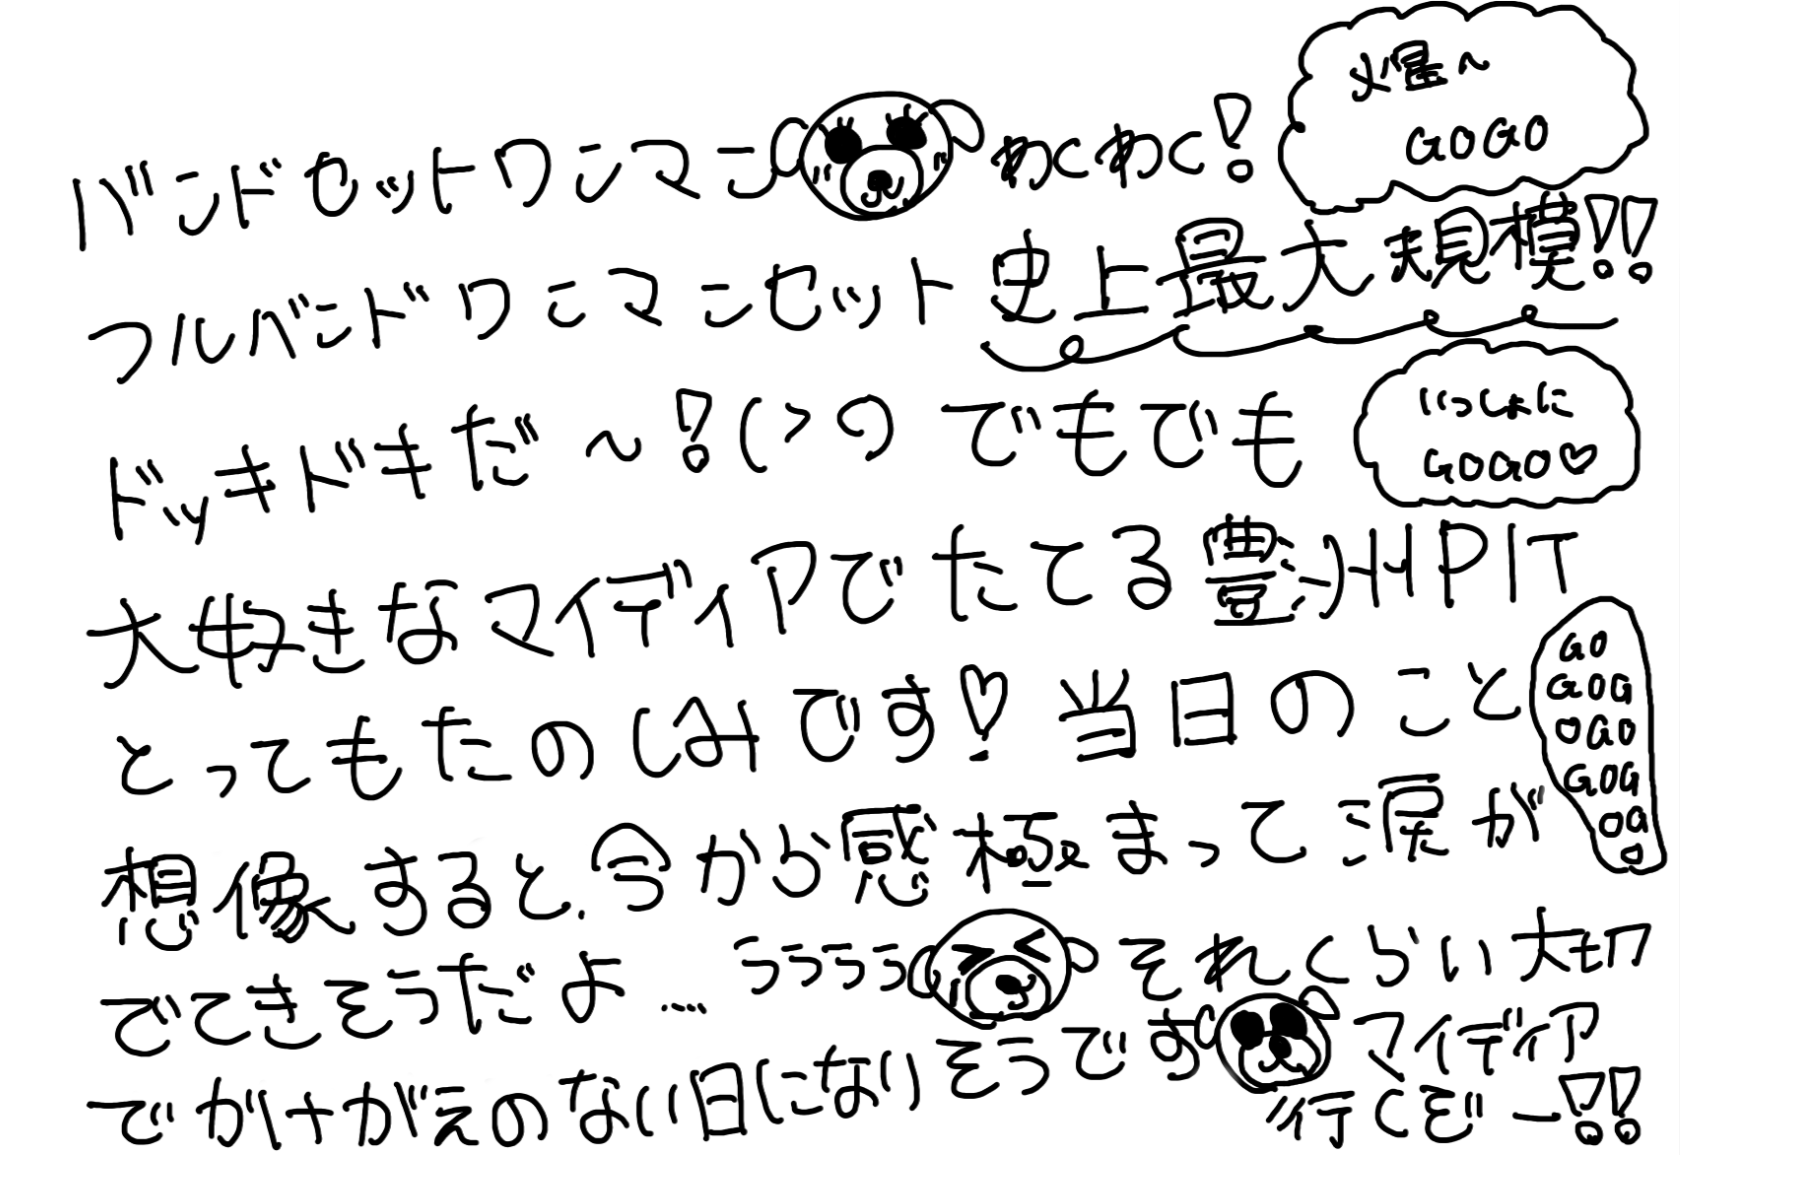 バンドセットワンマン わくわく!
火星〜
GOGO
フルバンドワンマンセット史上最大規模!!
ドッキドキだ〜!(>の でもでも
いっしょに
GOGO♡
大好きなマイディアでたてる豊洲PIT
とってもたのしみです♡ 当日のこと
想像すると、今から感極まって涙が
GO
GOG
OGO
GOG
OG
O
でてきそうだよ....うううう それくらい大切
でかけがえのない日になりそうです マイディア
行くぞー!!